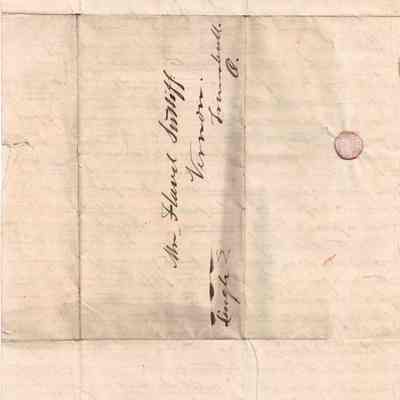 Mr Flavel Sutliff
Vernon.
Trumbull.
O.
Single